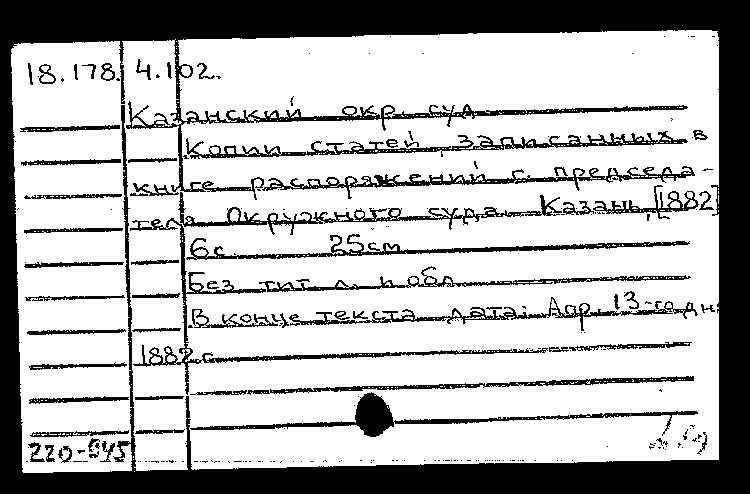 18.178. 4.102.
Казанский окр. суд
Копии статей, записанных в
книге распоряжений г. председа-
теля Окружного суда. Казань, [1882]
6с. 25см.
Без тит. л. и обл.
В конце текста дата: Апр. 13-го дня
1882 г.
220-845